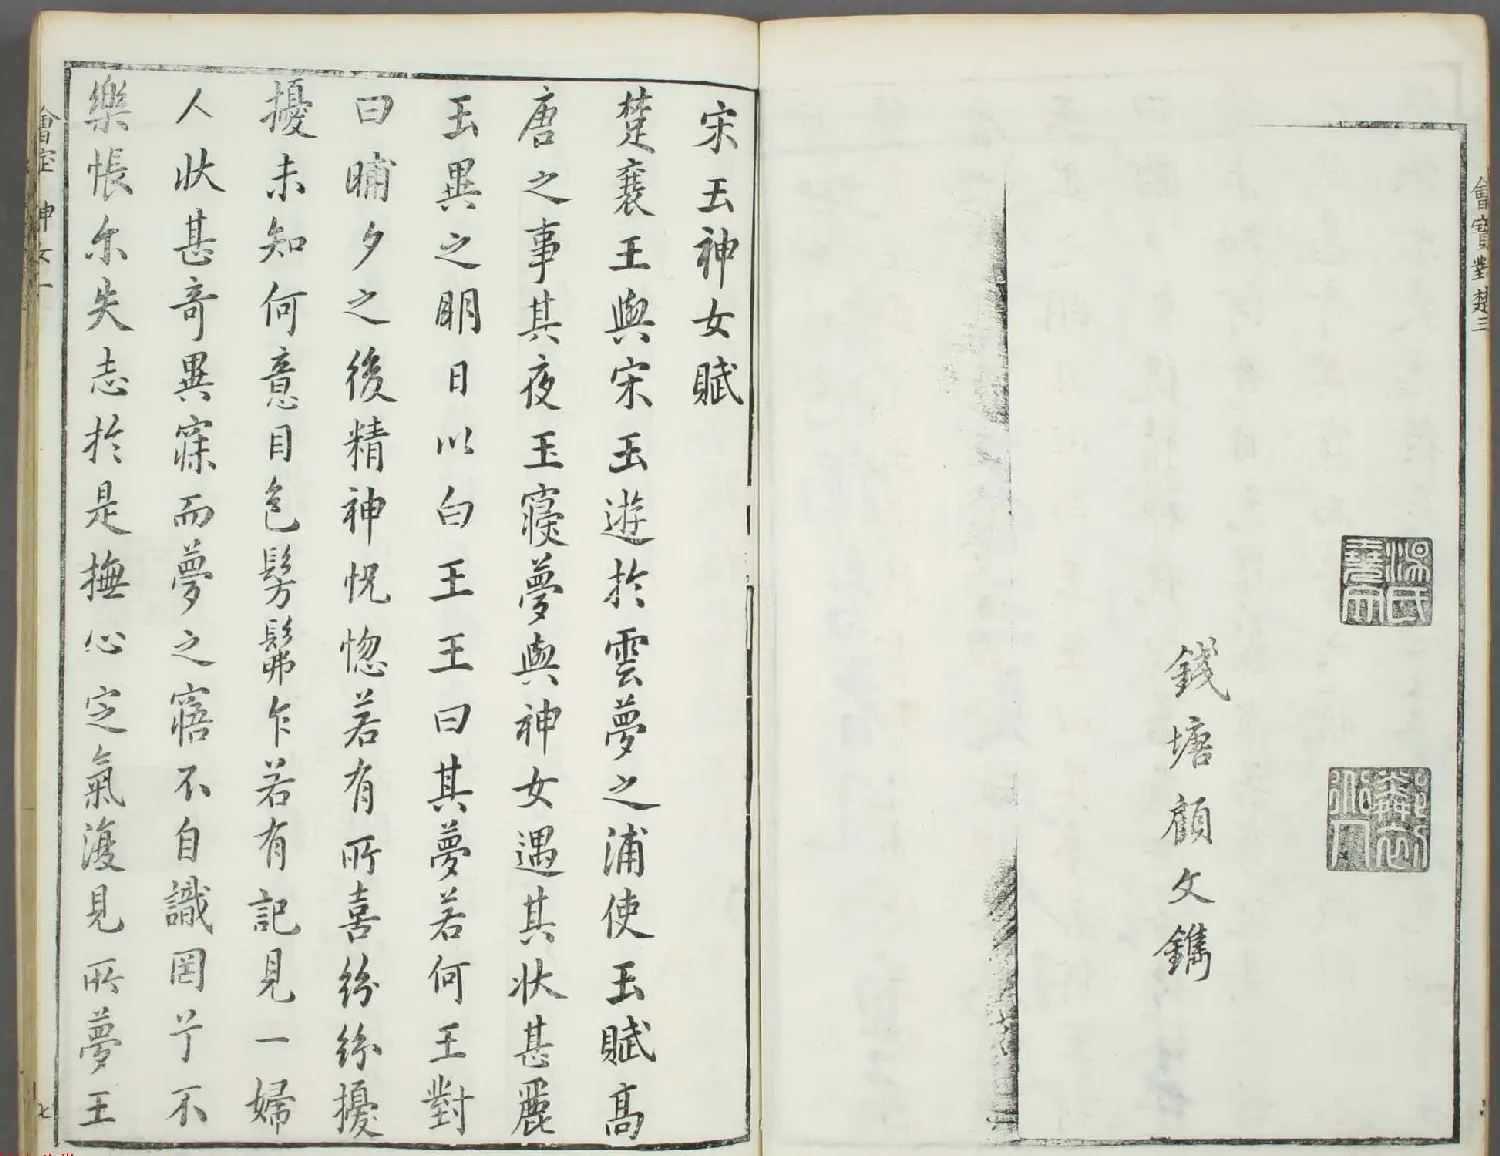 會寶對楚三
錢塘顧文鐫
宋玉神女賦
楚襄王與宋玉遊於雲夢之浦使玉賦高
唐之事其夜王寢夢與神女遇其狀甚麗
王異之明日以白玉王曰其夢若何王對
曰晡夕之後精神怳惚若有所喜紛紛擾
擾未知何意目色髣髴乍若有記見一婦
人狀甚奇異寐而夢之寤不自識罔兮不
樂悵尔失志於是撫心定氣復見所夢王
神女一
七